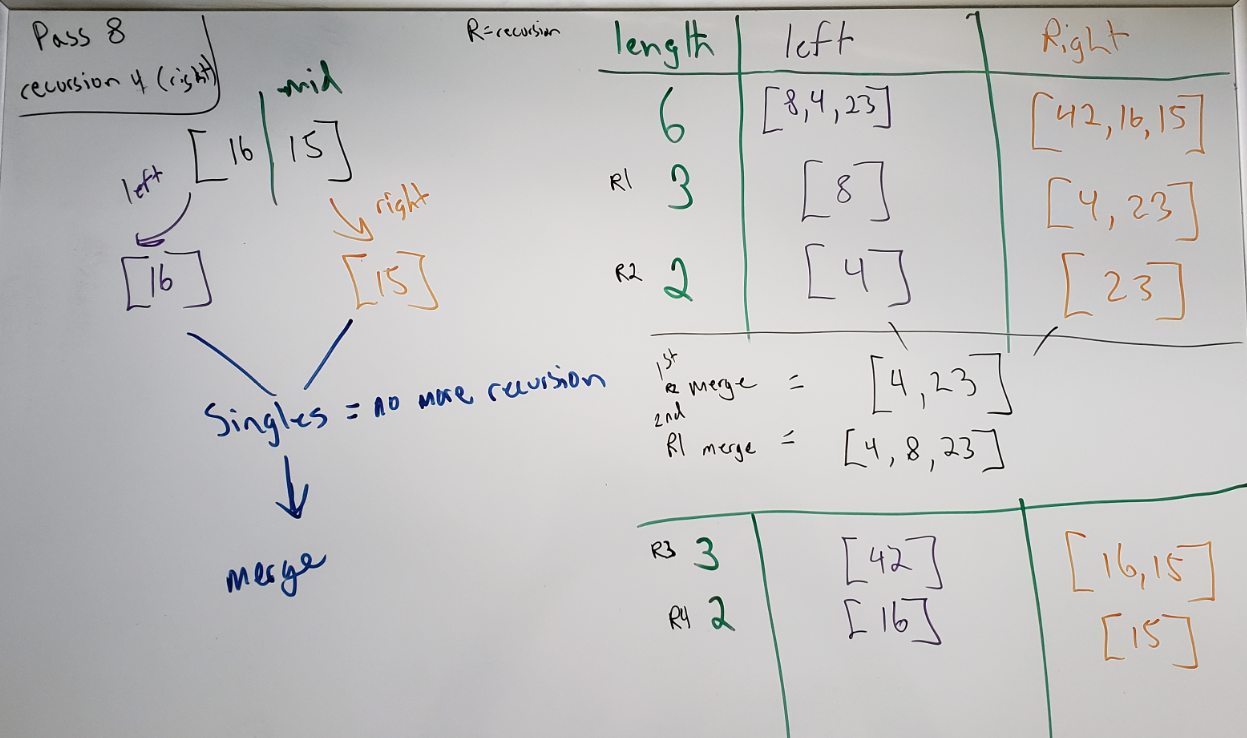 Pass 8
recursion 4 (right)
mid
[16 | 15]
left
right
[16]
[15]
Singles = no more recursion
merge
R=recursion
length left Right
6 [8,4,23] [42,16,15]
R1 3 [8] [4, 23]
R2 2 [4] [23]
1st
R2 merge = [4,23]
2nd
R1 merge = [4, 8, 23]
R3 3 [42] [16,15]
R4 2 [16] [15]